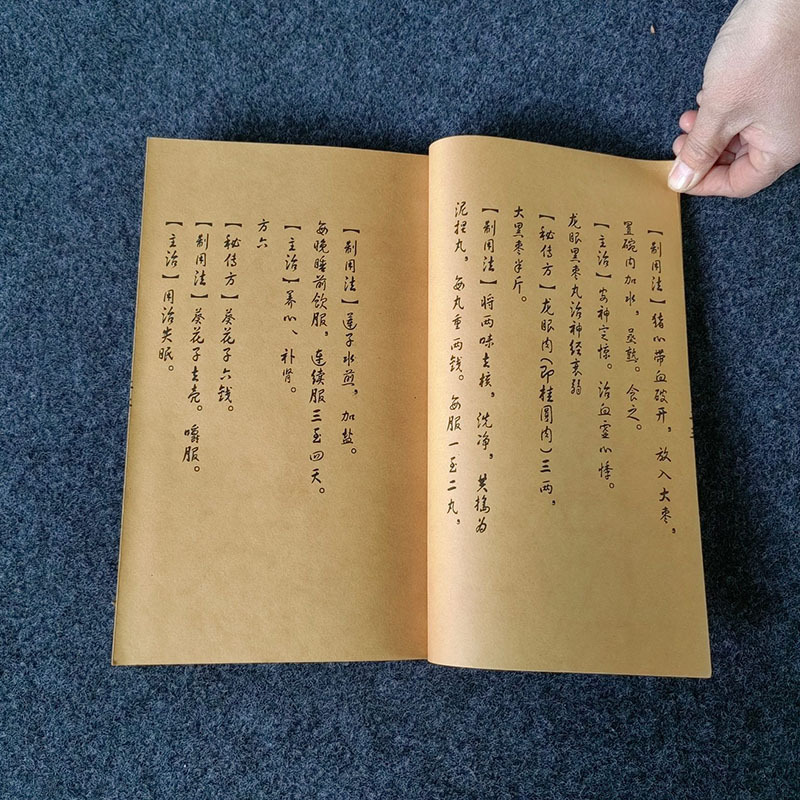 【制用法】猪心带血破开，放入大枣，
置碗内加水，蒸熟。食之。
【主治】安神定惊。治血虚心悸。
龙眼黑枣丸治神经衰弱
【秘传方】龙眼肉（即桂圆肉）三两，
大黑枣半斤。
【制用法】将两味去核，洗净，共捣为
泥捏丸，每丸重两钱。每服一至二丸，
【制用法】莲子水煎，加盐。
每晚睡前饮服，连续服三至四天。
【主治】养心、补肾。
方六
【秘传方】葵花子六钱。
【制用法】葵花子去壳。嚼服。
【主治】用治失眠。